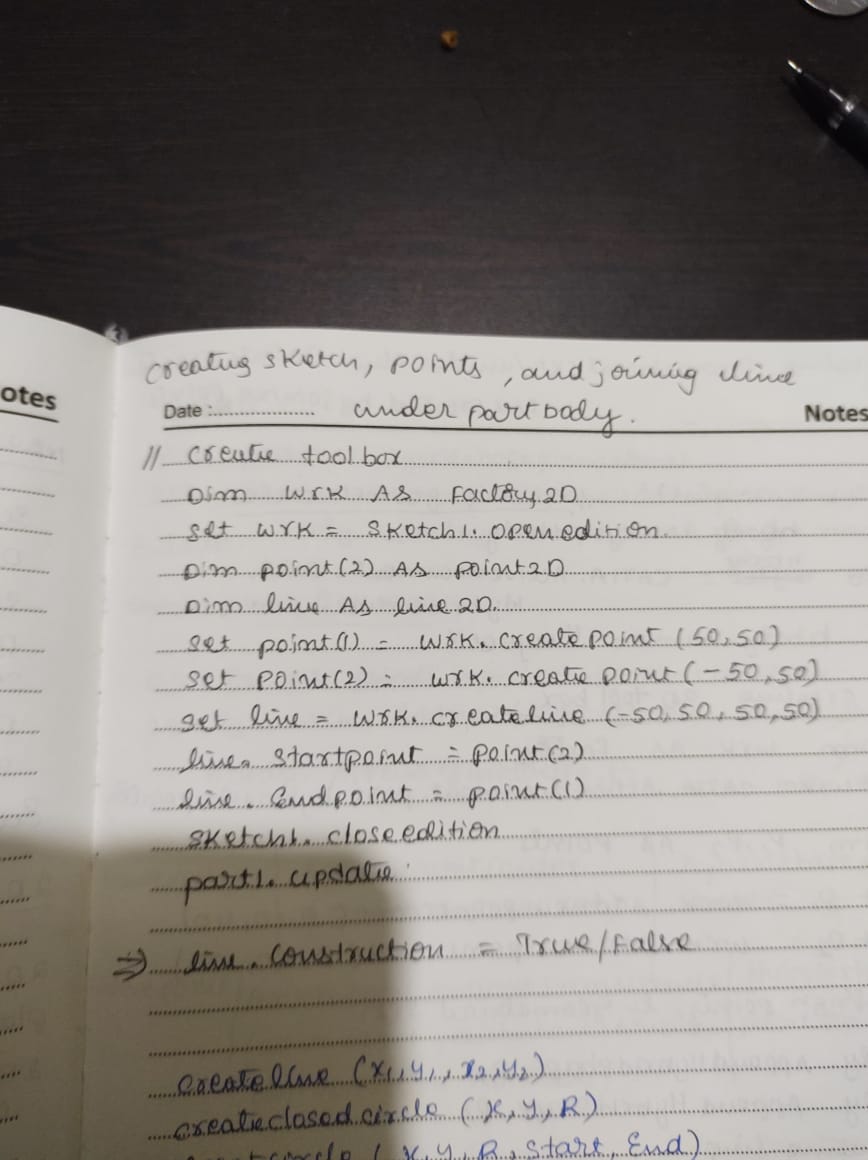 creating sketch, points, and joining line
otes
Date :.................... under partbody.
Notes
// create toolbox
Dim wrk As Factory2D
set wrk = Sketch1.openedition
Dim point(2) As point2D
Dim line As line2D
set point(1) = wrk.createpoint (50,50)
set point(2) = wrk.createpoint (-50,50)
set line = wrk.createline (-50,50,50,50)
line.startpoint = point(2)
line.Endpoint = point(1)
sketch1.closeedition
part1.update
⇒ line.construction = True/False
createline (x1,y1,x2,y2)
createclosedcircle (x,y,R)
circle (x,y,R,start,End)